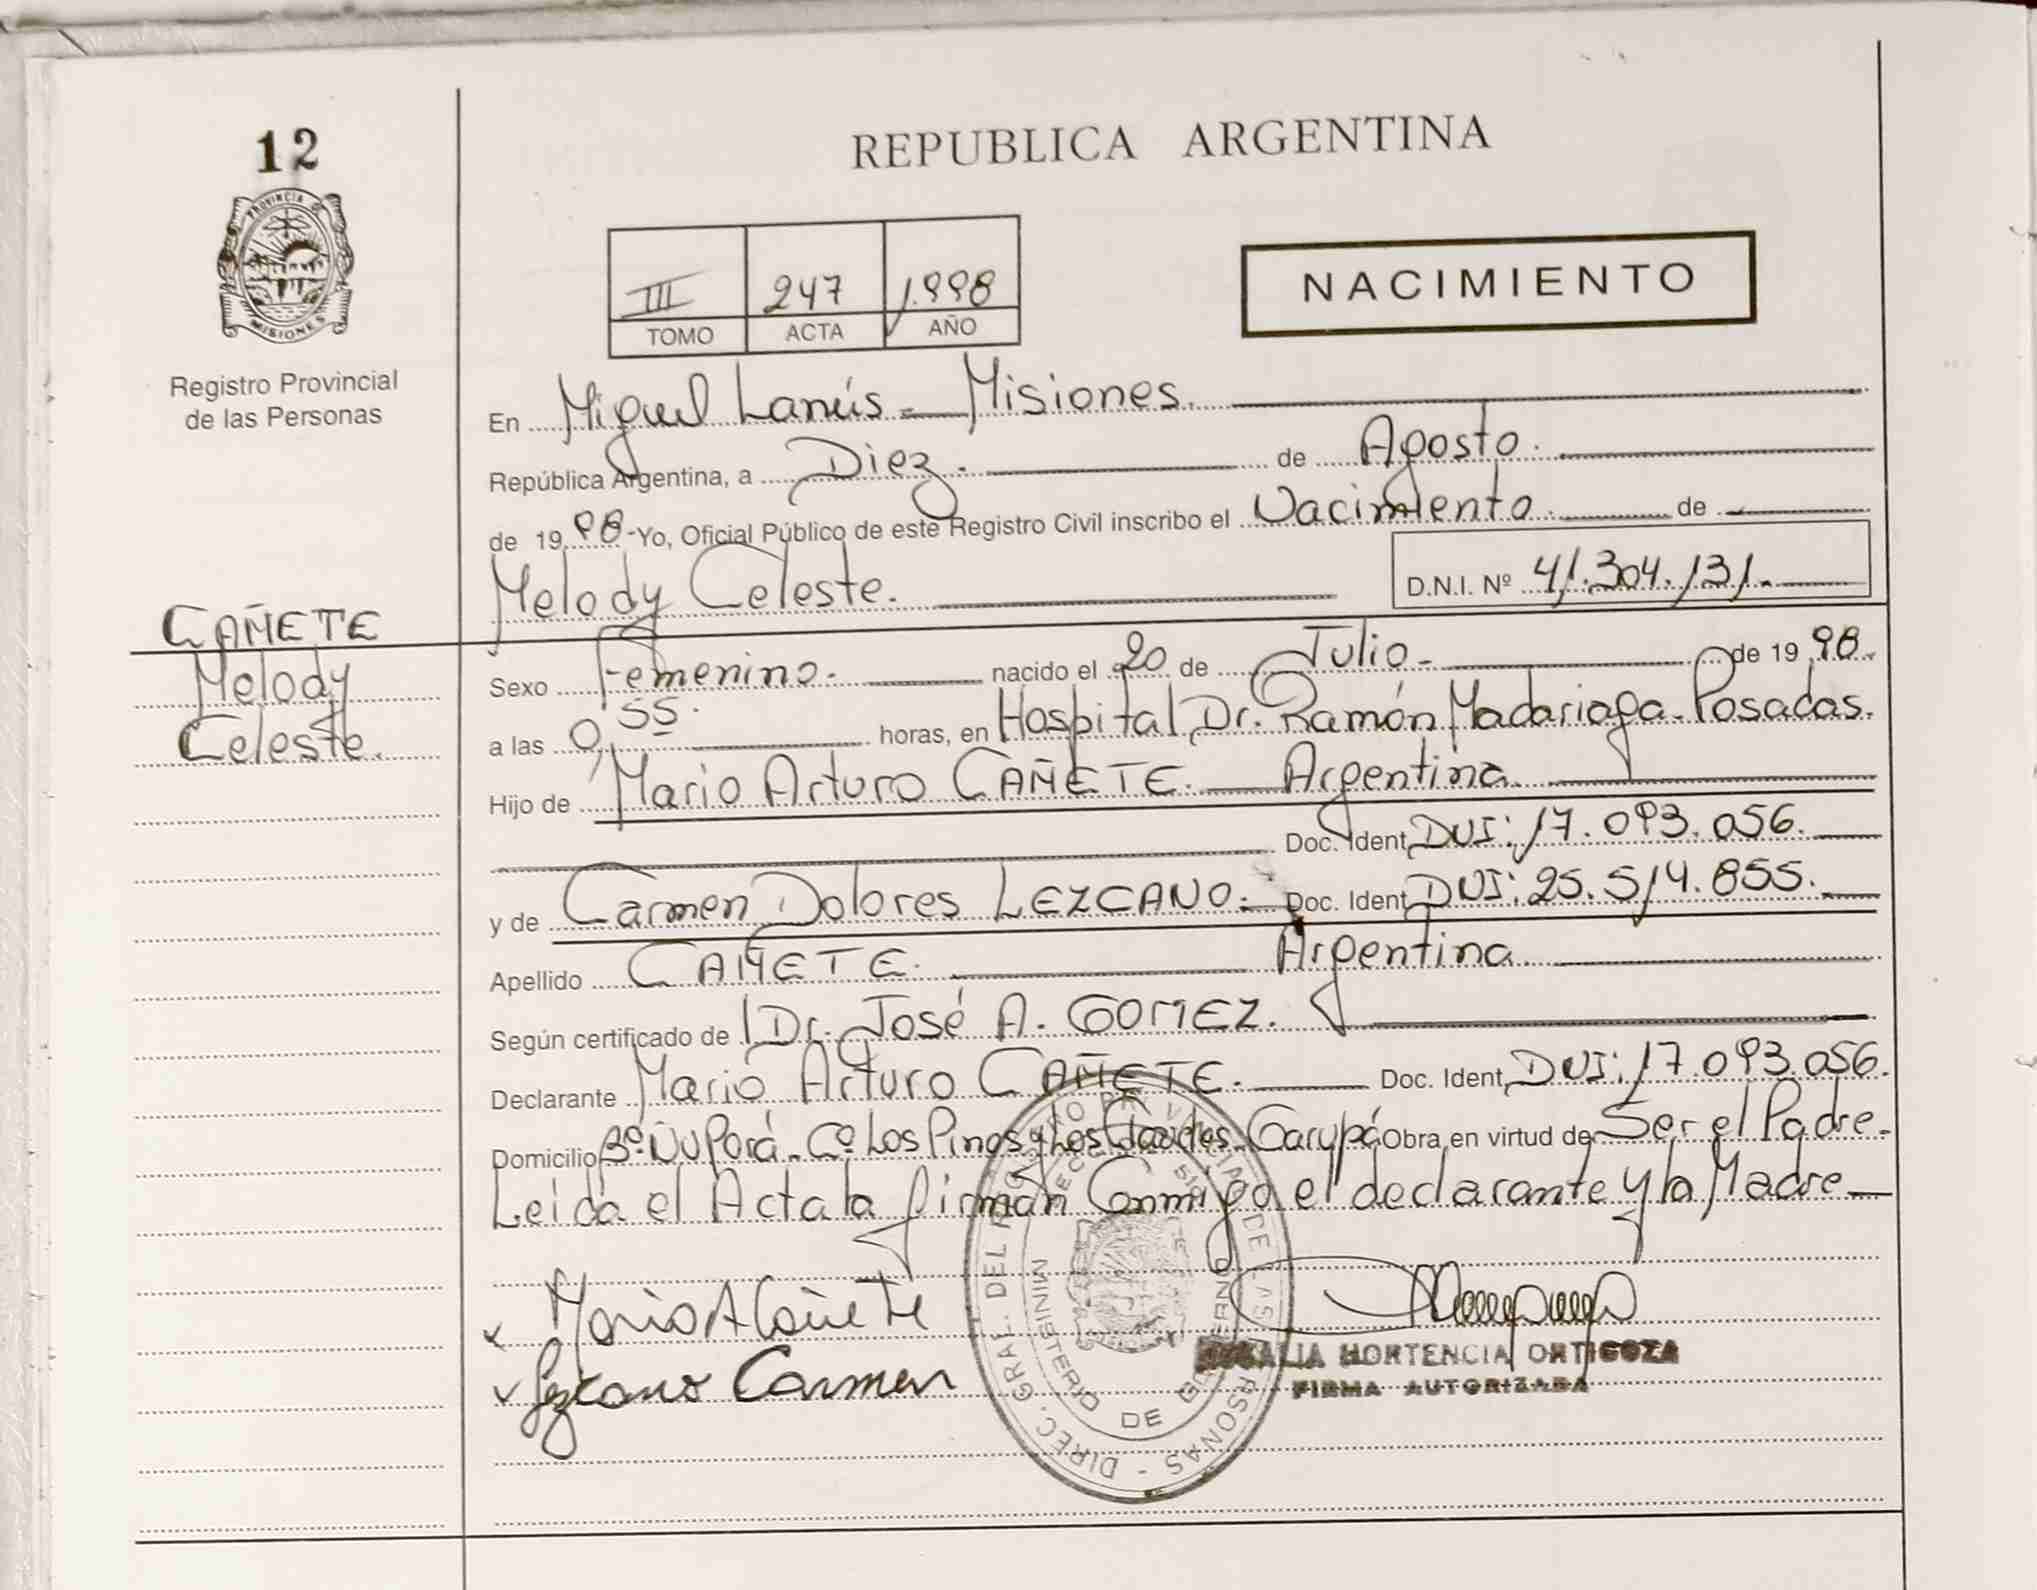 12
PROVINCIA D
MISIONES
Registro Provincial
de las Personas
CAÑETE
Melody
Celeste.
REPUBLICA ARGENTINA
III 247 1.998
TOMO ACTA AÑO
NACIMIENTO
En Miguel Lanús - Misiones.
República Argentina, a Diez. de Agosto.
de 19 98 - Yo, Oficial Público de este Registro Civil inscribo el Nacimiento. de
Melody Celeste. D.N.I. Nº 41.304.131.
Sexo Femenino. nacido el 20 de Julio. de 19 98.
a las 0,55. horas, en Hospital Dr. Ramón Madariaga. Posadas.
Hijo de Mario Arturo CAÑETE. Argentina
Doc. Ident. DNI: 17.093.056.
y de Carmen Dolores LEZCANO. Doc. Ident. DNI: 25.514.855.
Apellido CAÑETE. Argentina
Según certificado de Dr. José A. GOMEZ.
Declarante Mario Arturo CAÑETE. Doc. Ident. DNI: 17.093.056.
Domicilio Bº Ñu Porá. Cº Los Pinos y Los Garupá Obra en virtud de Ser el Padre.
Leida el Acta la firman Conmigo el declarante y la Madre
Mario A Cañete
Lezcano Carmen
DIREC. GRAL. DEL REGISTRO PROVINCIAL DE LAS PERSONAS -
MINISTERIO DE GOBIERNO
HORTENCIA ORTIGOZA
FIRMA AUTORIZADA